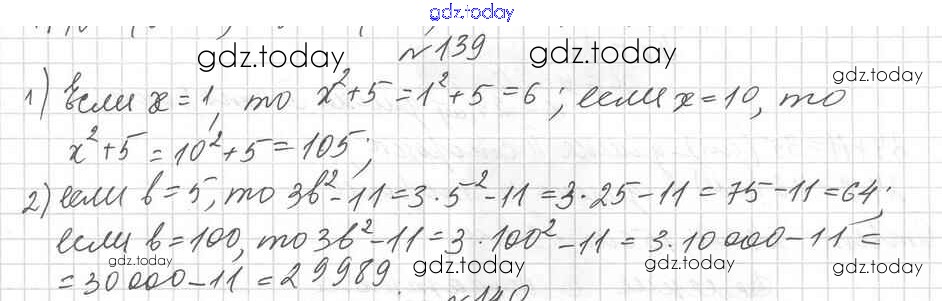 gdz.today
№139
gdz.today gdz.today
gdz.today
1) Если x = 1, то x² + 5 = 1² + 5 = 6 ; если x = 10, то
x² + 5 = 10² + 5 = 105;
2) если b = 5, то 3b² - 11 = 3 · 5² - 11 = 3 · 25 - 11 = 75 - 11 = 64;
если b = 100, то 3b² - 11 = 3 · 100² - 11 = 3 · 10000 - 11 =
= 30000 - 11 = 29989.
gdz.today gdz.today gdz.today
№140